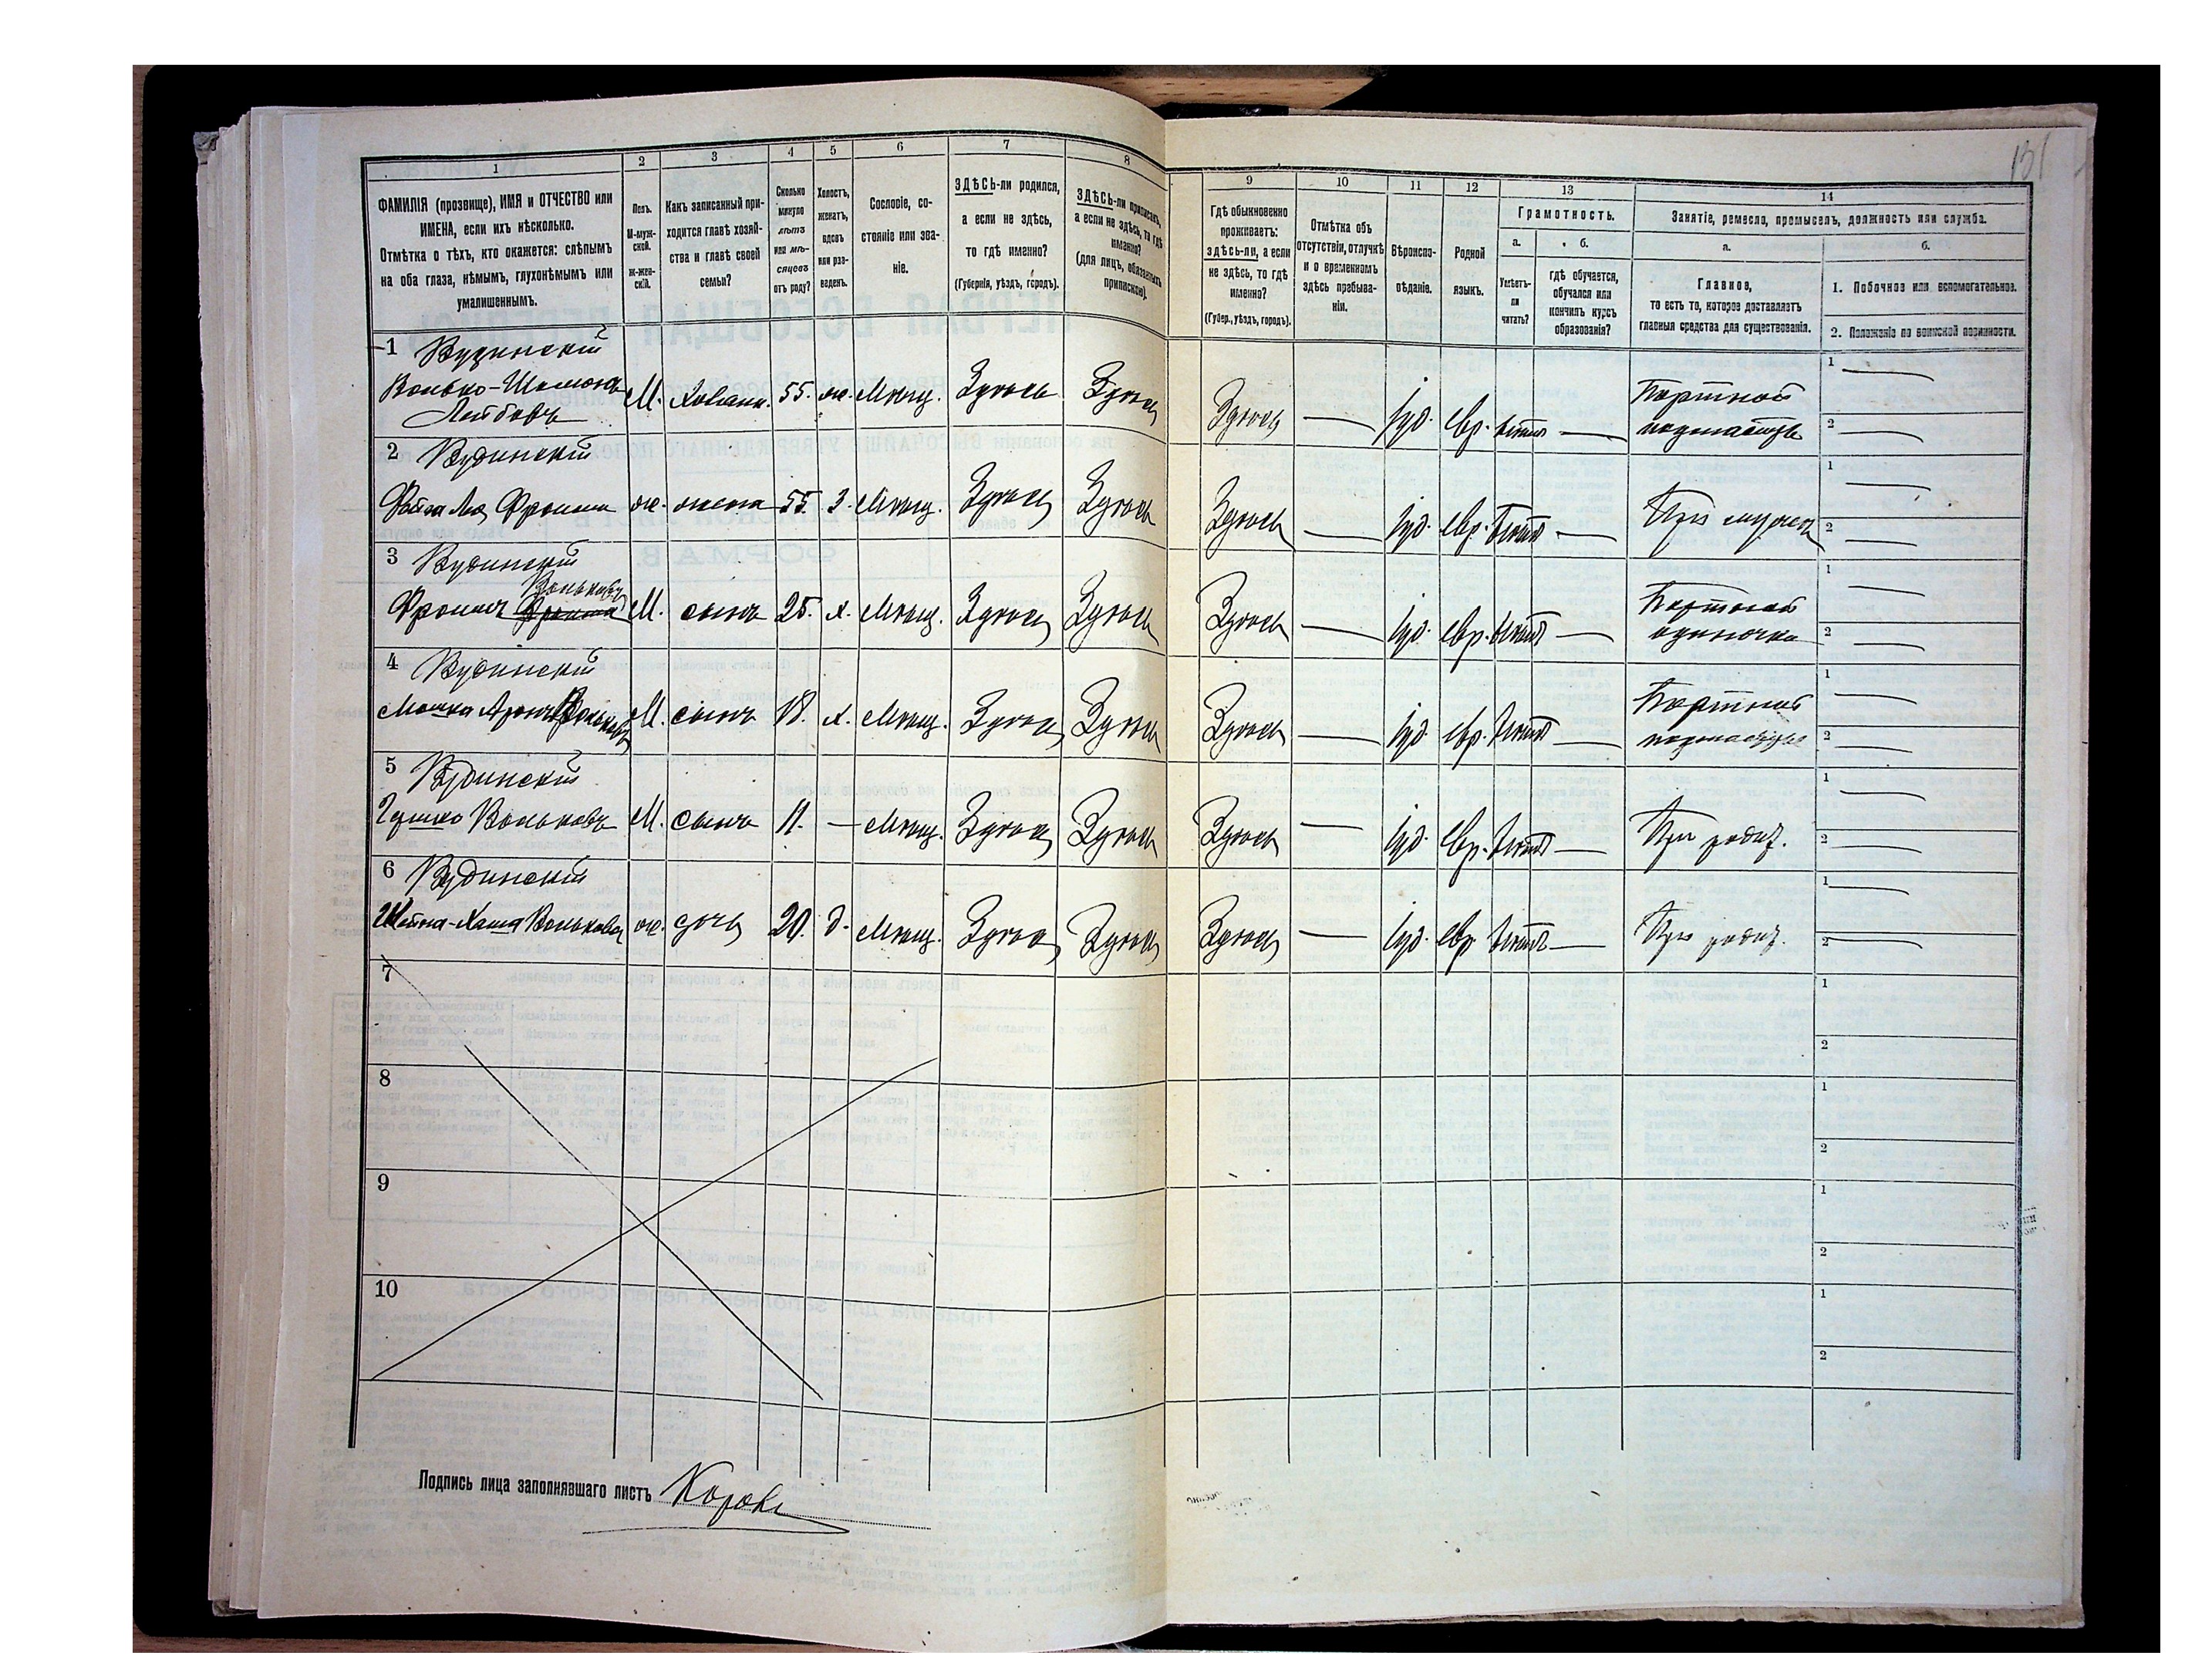 131
1
2
3
4
5
6
7
8
9
10
11
12
13
14
ФАМИЛІЯ (прозвище), ИМЯ и ОТЧЕСТВО или
ИМЕНА, если ихъ нѣсколько.
Отмѣтка о тѣхъ, кто окажется: слѣпымъ
на оба глаза, нѣмымъ, глухонѣмымъ или
умалишеннымъ.
Полъ.
М-муж-
ской.
Ж-жен-
скій.
Какъ записанный при-
ходится главѣ хозяй-
ства и главѣ своей
семьи?
Сколько
минуло
лѣтъ
или мѣ-
сяцевъ
отъ роду?
Холостъ,
женатъ,
вдовъ
или раз-
веденъ.
Сословіе, со-
стояніе или зва-
ніе.
ЗДѢСЬ-ли родился,
а если не здѣсь,
то гдѣ именно?
(Губернія, уѣздъ, городъ).
ЗДѢСЬ-ли приписанъ,
а если не здѣсь, то гдѣ
именно?
(для лицъ, обязанныхъ
припискою).
Гдѣ обыкновенно
проживаетъ:
здѣсь-ли, а если
не здѣсь, то гдѣ
именно?
(Губер., уѣздъ, городъ).
Отмѣтка объ
отсутствіи, отлучкѣ
и о временномъ
здѣсь пребыва-
ніи.
Вѣроиспо-
вѣданіе.
Родной
языкъ.
Грамотность.
а.
б.
Умѣетъ-
ли
читать?
гдѣ обучается,
обучался или
кончилъ курсъ
образованія?
Занятіе, ремесло, промыселъ, должность или служба.
а.
б.
Главное,
то есть то, которое доставляетъ
главныя средства для существованія.
1. Побочное или вспомогательное.
2. Положеніе по воинской повинности.
1 Вудинскій
Волько-Шломо Лейбовъ М. Хозяин. 55. ж. Мѣщ. Здѣсь Здѣсь Здѣсь — іуд. евр. — Портной 1 — 2 —
2 Вудинскій
Фейга Фроима ж. жена 55. З. Мѣщ. Здѣсь Здѣсь Здѣсь — іуд. евр. — При мужѣ 1 — 2 —
3 Вудинскій
Фроимъ Вольковъ М. сынъ 25. х. Мѣщ. Здѣсь Здѣсь Здѣсь — іуд. евр. — Портной одиночка 1 — 2 —
4 Вудинскій
Мошка Аронъ Вольковъ М. сынъ 18. х. Мѣщ. Здѣсь Здѣсь Здѣсь — іуд. евр. — Портной 1 — 2 —
5 Вудинскій
Гершко Вольковъ М. сынъ 11. — Мѣщ. Здѣсь Здѣсь Здѣсь — іуд. евр. — При родит. 1 — 2 —
6 Вудинскій
Шейна-Хаша Волькова ж. дочь 20. д. Мѣщ. Здѣсь Здѣсь Здѣсь — іуд. евр. — При родит. 1 — 2 —
7
1
2
8
1
2
9
1
2
10
1
2
Подпись лица заполнявшаго листъ